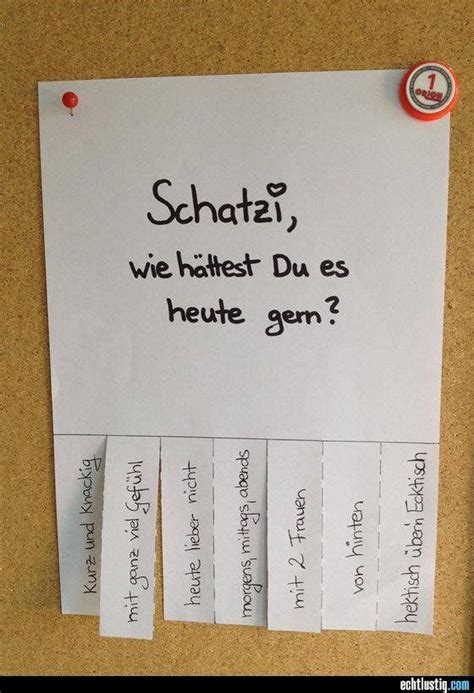 1
ORION
Schatzi,
wie hättest Du es
heute gern?
Kurz und Knackig
mit ganz viel Gefühl
heute lieber nicht
morgens, mittags, abends
mit 2 Frauen
von hinten
hektisch über'n Ecktisch
echtlustig.com